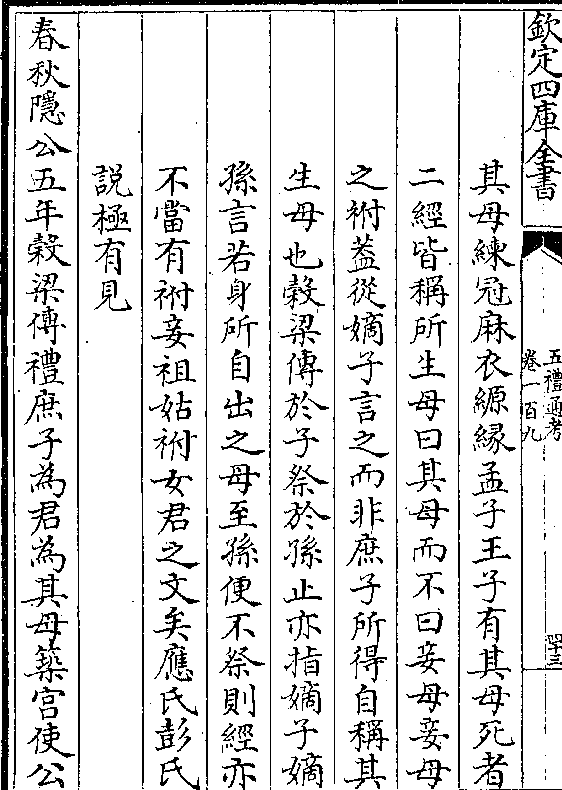 欽定四庫全書
五禮通考
卷一百九
四十三
其母練冠麻衣縓緣孟子王子有其母死者
二經皆稱所生母曰其母而不曰妾母妾母
之祔葢從嫡子言之而非庶子所得自稱其
生母也榖梁傳於子祭於孫止亦指嫡子嫡
孫言若身所自出之母至孫便不祭則經亦
不當有祔妾祖姑祔女君之文矣應氏彭氏
說極有見
春秋隱公五年榖梁傳禮庶子為君為其母築宮使公